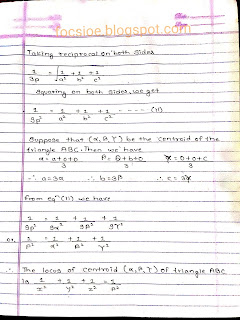 focsioe.blogspot.com
Taking reciprocal on both sides
1/3p = √(1/a² + 1/b² + 1/c²)
Squaring on both sides, we get
1/9p² = 1/a² + 1/b² + 1/c² ---- (11)
Suppose that (α, β, γ) be the centroid of the
triangle ABC. Then we have
α = a+0+0/3 β = 0+b+0/3 γ = 0+0+c/3
∴ a = 3α ∴ b = 3β ∴ c = 3γ
From eqⁿ (11) we have
1/9p² = 1/9α² + 1/9β² + 1/9γ²
or, 1/p² = 1/α² + 1/β² + 1/γ²
∴ The locus of centroid (α, β, γ) of triangle ABC
is 1/x² + 1/y² + 1/z² = 1/p²